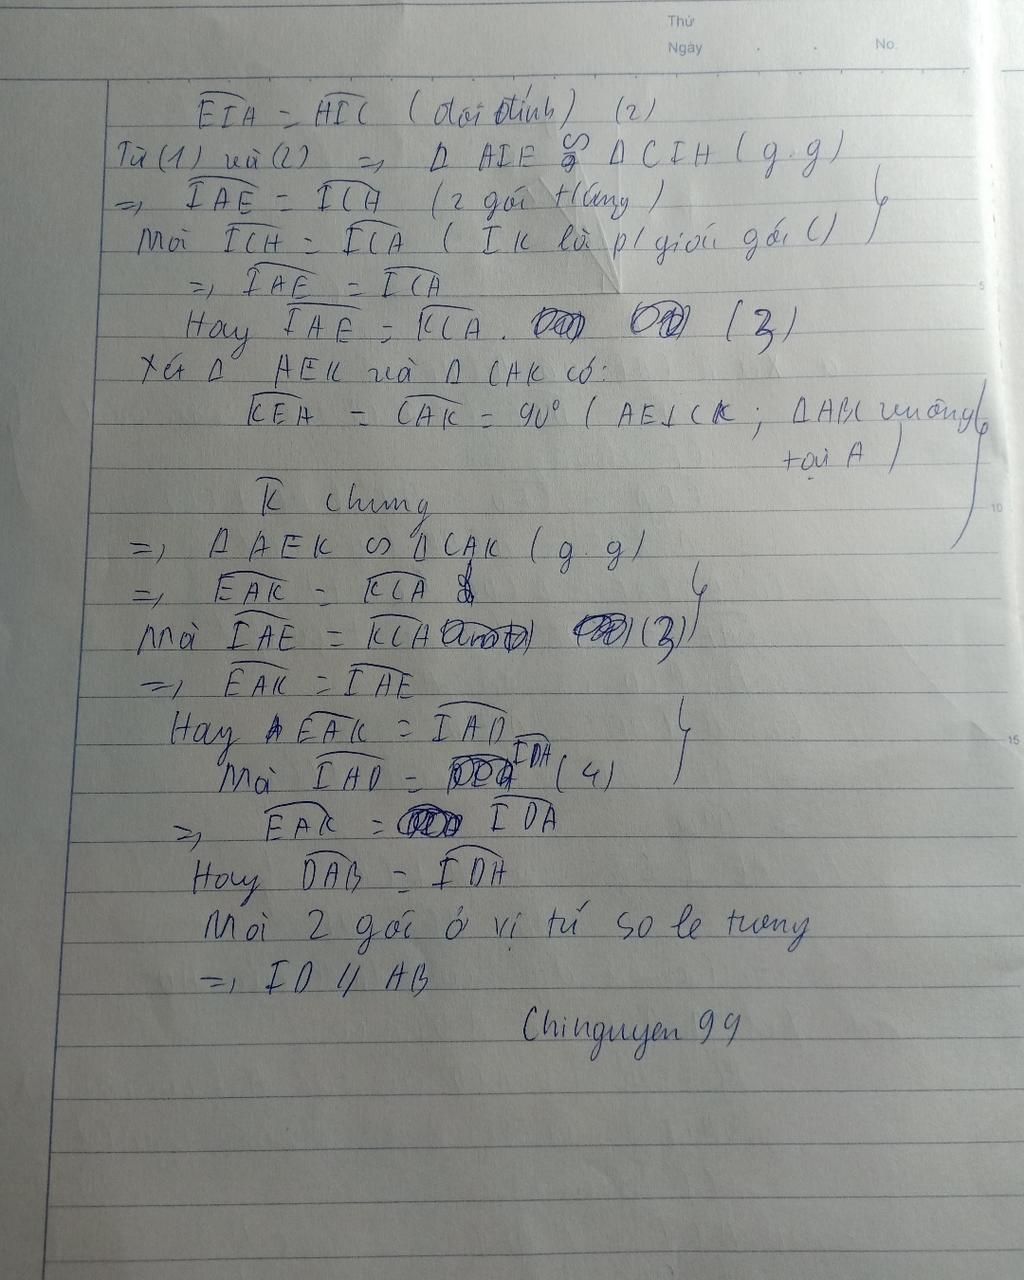 Thứ
Ngày . . No.
EIA = HIC (đối đỉnh) (2)
Từ (1) và (2) => Δ AIE ∽ Δ CIH (g.g)
=> IAE = ICH (2 góc t/ứng)
Mà ICH = ICA ( IK là p/giác góc C)
=> IAE = ICA
Hay IAE = KCA. (3)
Xét Δ AEK và Δ CAK có:
KEA = CAK = 90° ( AE⊥CK ; ΔABC vuông
tại A )
K chung
=> Δ AEK ∽ Δ CAK (g.g)
=> EAK = KCA
Mà IAE = KCA (3)
=> EAK = IAE
Hay EAK = IAD
Mà IAD = IDA (4)
=> EAK = IDA
Hay DAB = IDA
Mà 2 góc ở vị trí so le trong
=> ID // AB
Chinguyen 99
5
10
15